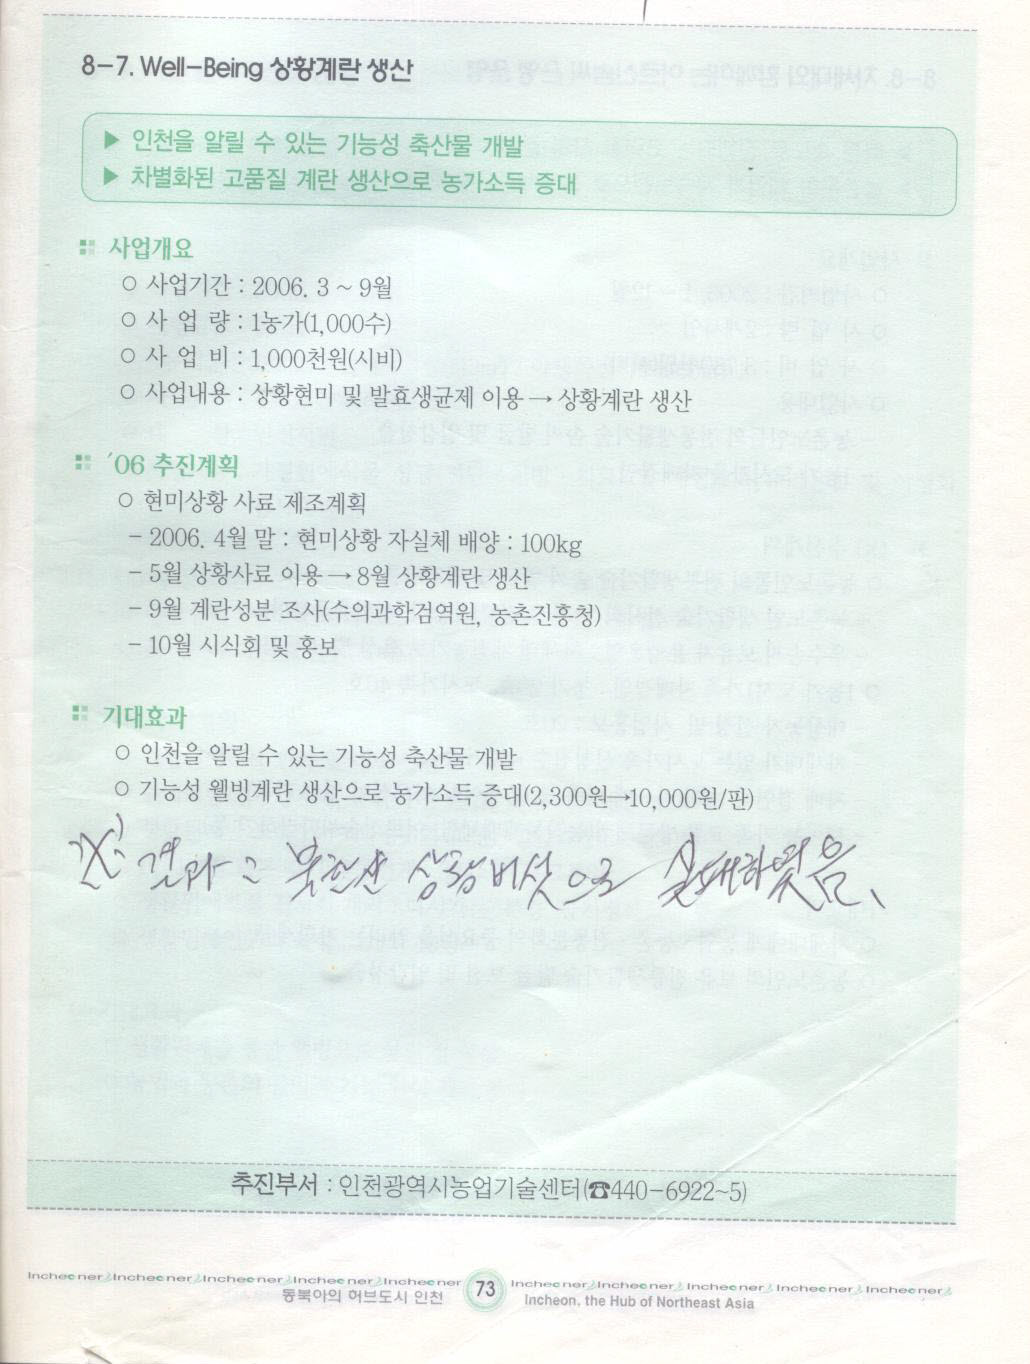 8-7. Well-Being 상황계란 생산
▶ 인천을 알릴 수 있는 기능성 축산물 개발
▶ 차별화된 고품질 계란 생산으로 농가소득 증대
사업개요
○ 사업기간 : 2006. 3 ~ 9월
○ 사 업 량 : 1농가(1,000수)
○ 사 업 비 : 1,000천원(시비)
○ 사업내용 : 상황현미 및 발효생균제 이용 → 상황계란 생산
´06 추진계획
○ 현미상황 사료 제조계획
- 2006. 4월 말 : 현미상황 자실체 배양 : 100kg
- 5월 상황사료 이용 → 8월 상황계란 생산
- 9월 계란성분 조사(수의과학검역원, 농촌진흥청)
- 10월 시식회 및 홍보
기대효과
○ 인천을 알릴 수 있는 기능성 축산물 개발
○ 기능성 웰빙계란 생산으로 농가소득 증대(2,300원→10,000원/판)
※ 결과 : 북한산 상황버섯으로 실패하였음.
추진부서 : 인천광역시농업기술센터(☎440-6922~5)
Incheoner Incheoner Incheoner Incheoner Incheoner 73 Incheoner Incheoner Incheoner Incheoner Incheoner
동북아의 허브도시 인천 Incheon, the Hub of Northeast Asia